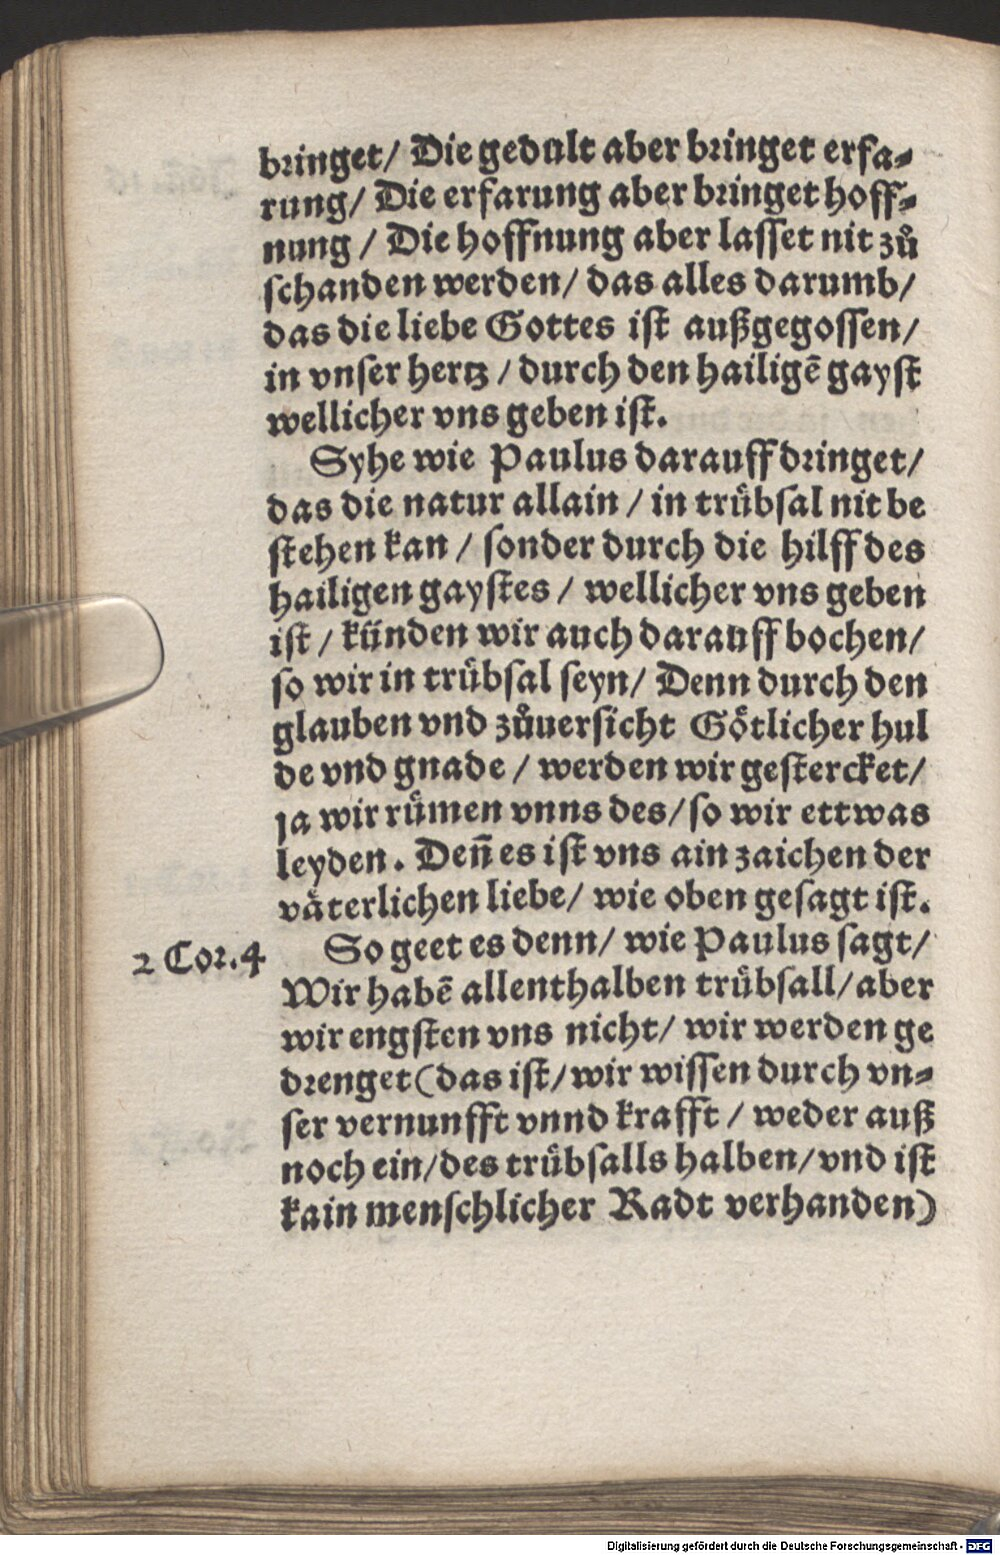 bringet/ Die gedult aber bringet erfa⸗
rung/ Die erfarung aber bringet hoff⸗
nung / Die hoffnung aber lasset nit zů
schanden werden/ das alles darumb/
das die liebe Gottes ist außgegossen/
in vnser hertz / durch den hailigē gayst
wellicher vns geben ist.
Syhe wie Paulus darauff dringet/
das die natur allain / in trůbsal nit be
stehen kan / sonder durch die hilff des
hailigen gaystes / wellicher vns geben
ist / künden wir auch darauff bochen/
so wir in trůbsal seyn/ Denn durch den
glauben vnd zůuersicht Gȏtlicher hul
de vnd gnade / werden wir gestercket/
ja wir růmen vnns des/ so wir ettwas
leyden. Den̄ es ist vns ain zaichen der
väterlichen liebe/ wie oben gesagt ist.
2 Cor. 4
So geet es denn/ wie Paulus sagt/
Wir habē allenthalben trůbsall/ aber
wir engsten vns nicht/ wir werden ge
drenget (das ist/ wir wissen durch vn⸗
ser vernunfft vnnd krafft / weder auß
noch ein/ des trůbsalls halben/ vnd ist
kain menschlicher Radt verhanden)
Digitalisierung gefördert durch die Deutsche Forschungsgemeinschaft - DFG